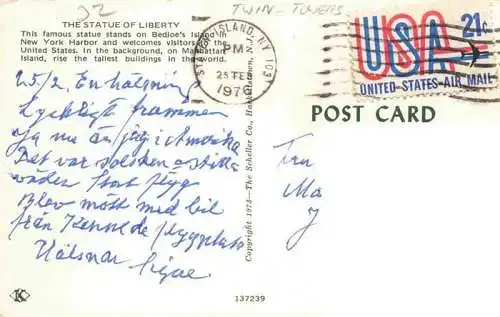 22
TWIN - TOWERS
THE STATUE OF LIBERTY
This famous statue stands on Bedloe's Island in
New York Harbor and welcomes visitors to the
United States. In the background, on Manhattan
Island, rise the tallest buildings in the world.
STATEN ISLAND, NY 103
PM
25 FEB
1976
USA 21c
UNITED STATES AIR MAIL
POST CARD
25/2. En hälsning
Lyckligt framme
Ja nu är jag i Amerika
Det var solsken o stilla
väder
Blev mött med bil
från Kennedy flygplats
Hälsnar Signe
Fru
Ma
J
Copyright 1973—The Scheller Co., Hackettstown,
K
137239